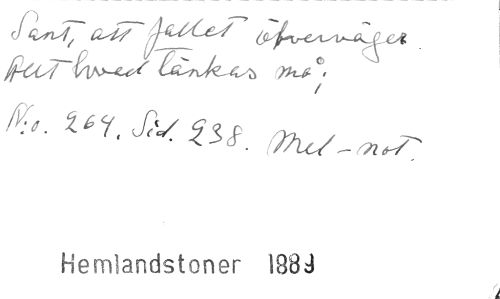 Sant, att fallet öfverväger
Allt hvad tänkas må;
N:o. 264. Sid. 238. Mel-not.
Hemlandstoner 1889